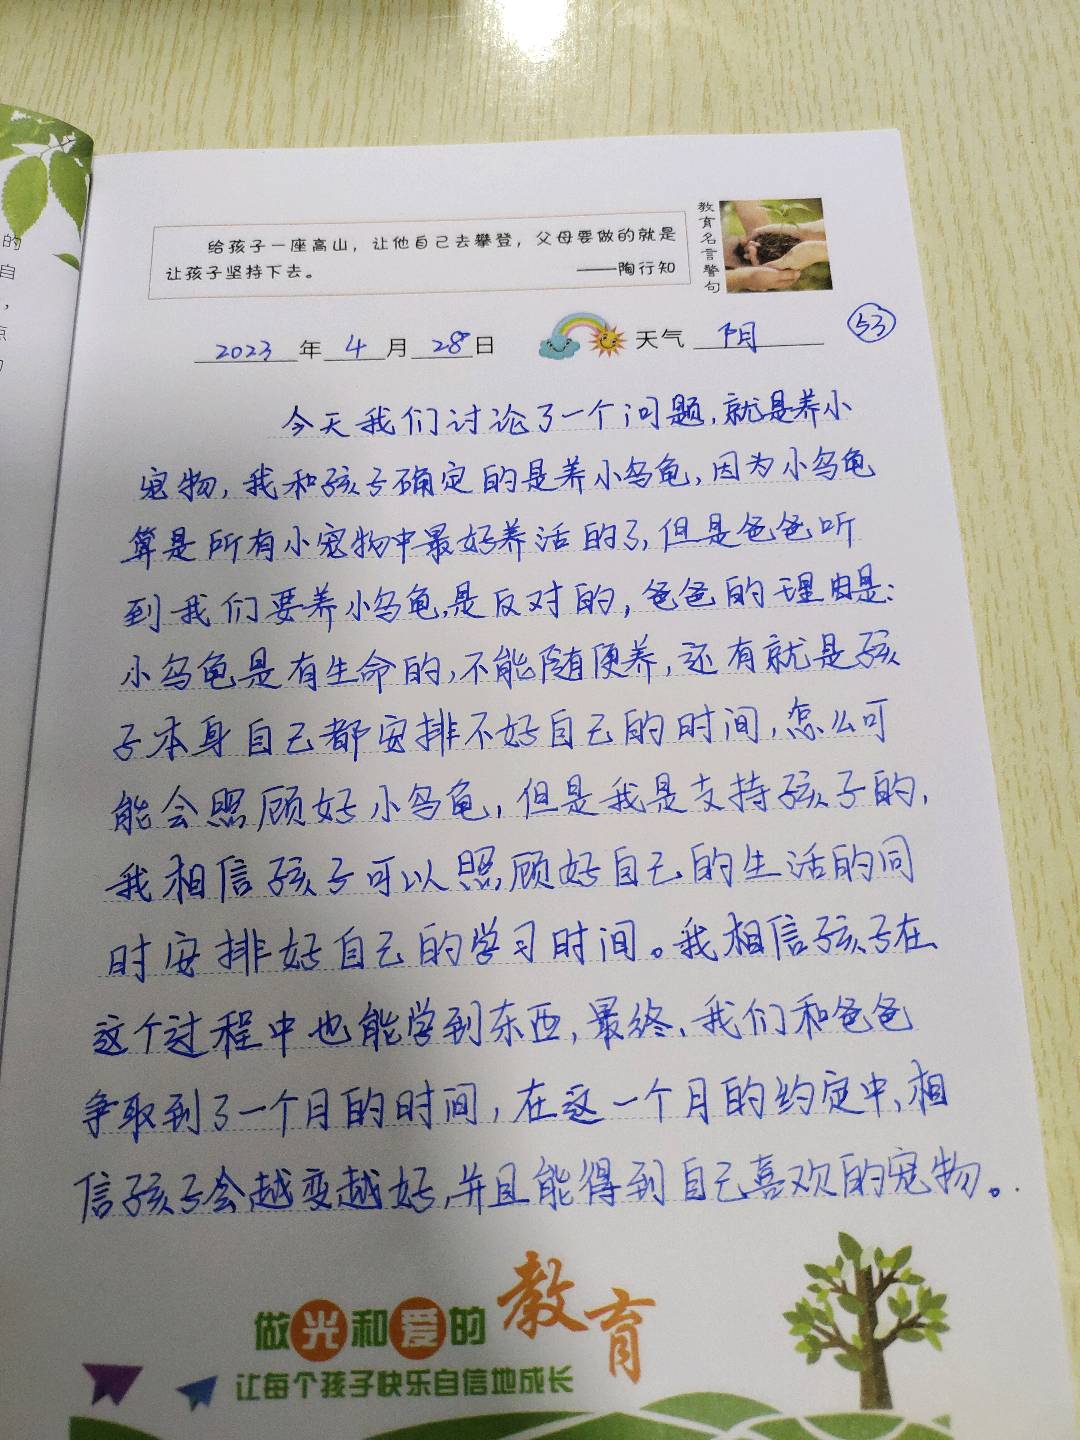 的
自
，
给孩子一座高山，让他自己去攀登，父母要做的就是
让孩子坚持下去。 ——陶行知
教育名言警句
2023年4月28日 天气 阴 53
今天我们讨论了一个问题,就是养小
宠物,我和孩子确定的是养小乌龟,因为小乌龟
算是所有小宠物中最好养活的了,但是爸爸听
到我们要养小乌龟,是反对的,爸爸的理由是:
小乌龟是有生命的,不能随便养,还有就是孩
子本身自己都安排不好自己的时间,怎么可
能会照顾好小乌龟,但是我是支持孩子的,
我相信孩子可以照顾好自己的生活的同
时安排好自己的学习时间。我相信孩子在
这个过程中也能学到东西,最终、我们和爸爸
争取到了一个月的时间,在这一个月的约定中、相
信孩子会越变越好,并且能得到自己喜欢的宠物。
做光和爱的教育
让每个孩子快乐自信地成长